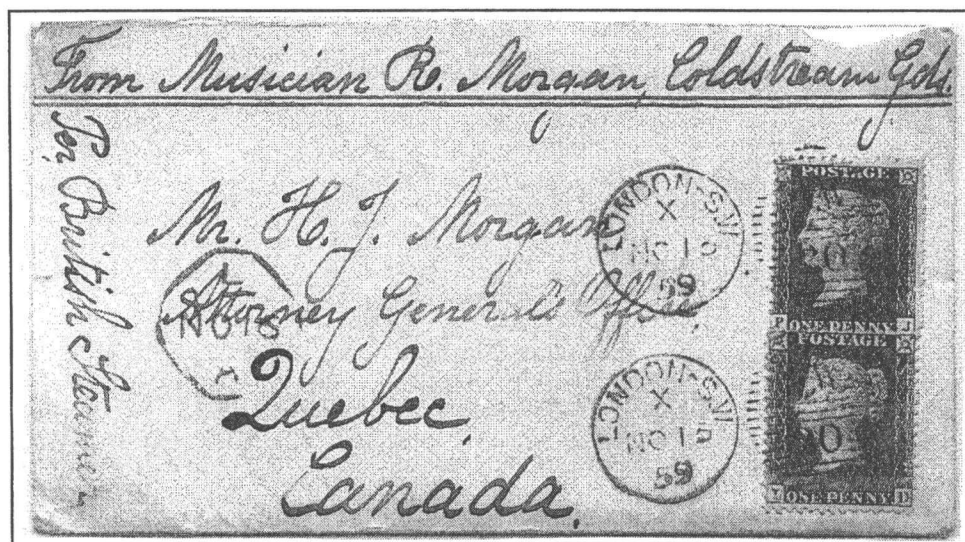 From Musician R. Morgan, Coldstream Gds.
Per British Steamer
Mr. H. J. Morgan
Attorney General's Office,
Quebec
Canada.
LONDON-S.W
X
NO 1
59
LONDON-S.W
X
NO 1
59
NO 18
POSTAGE
ONE PENNY
POSTAGE
ONE PENNY